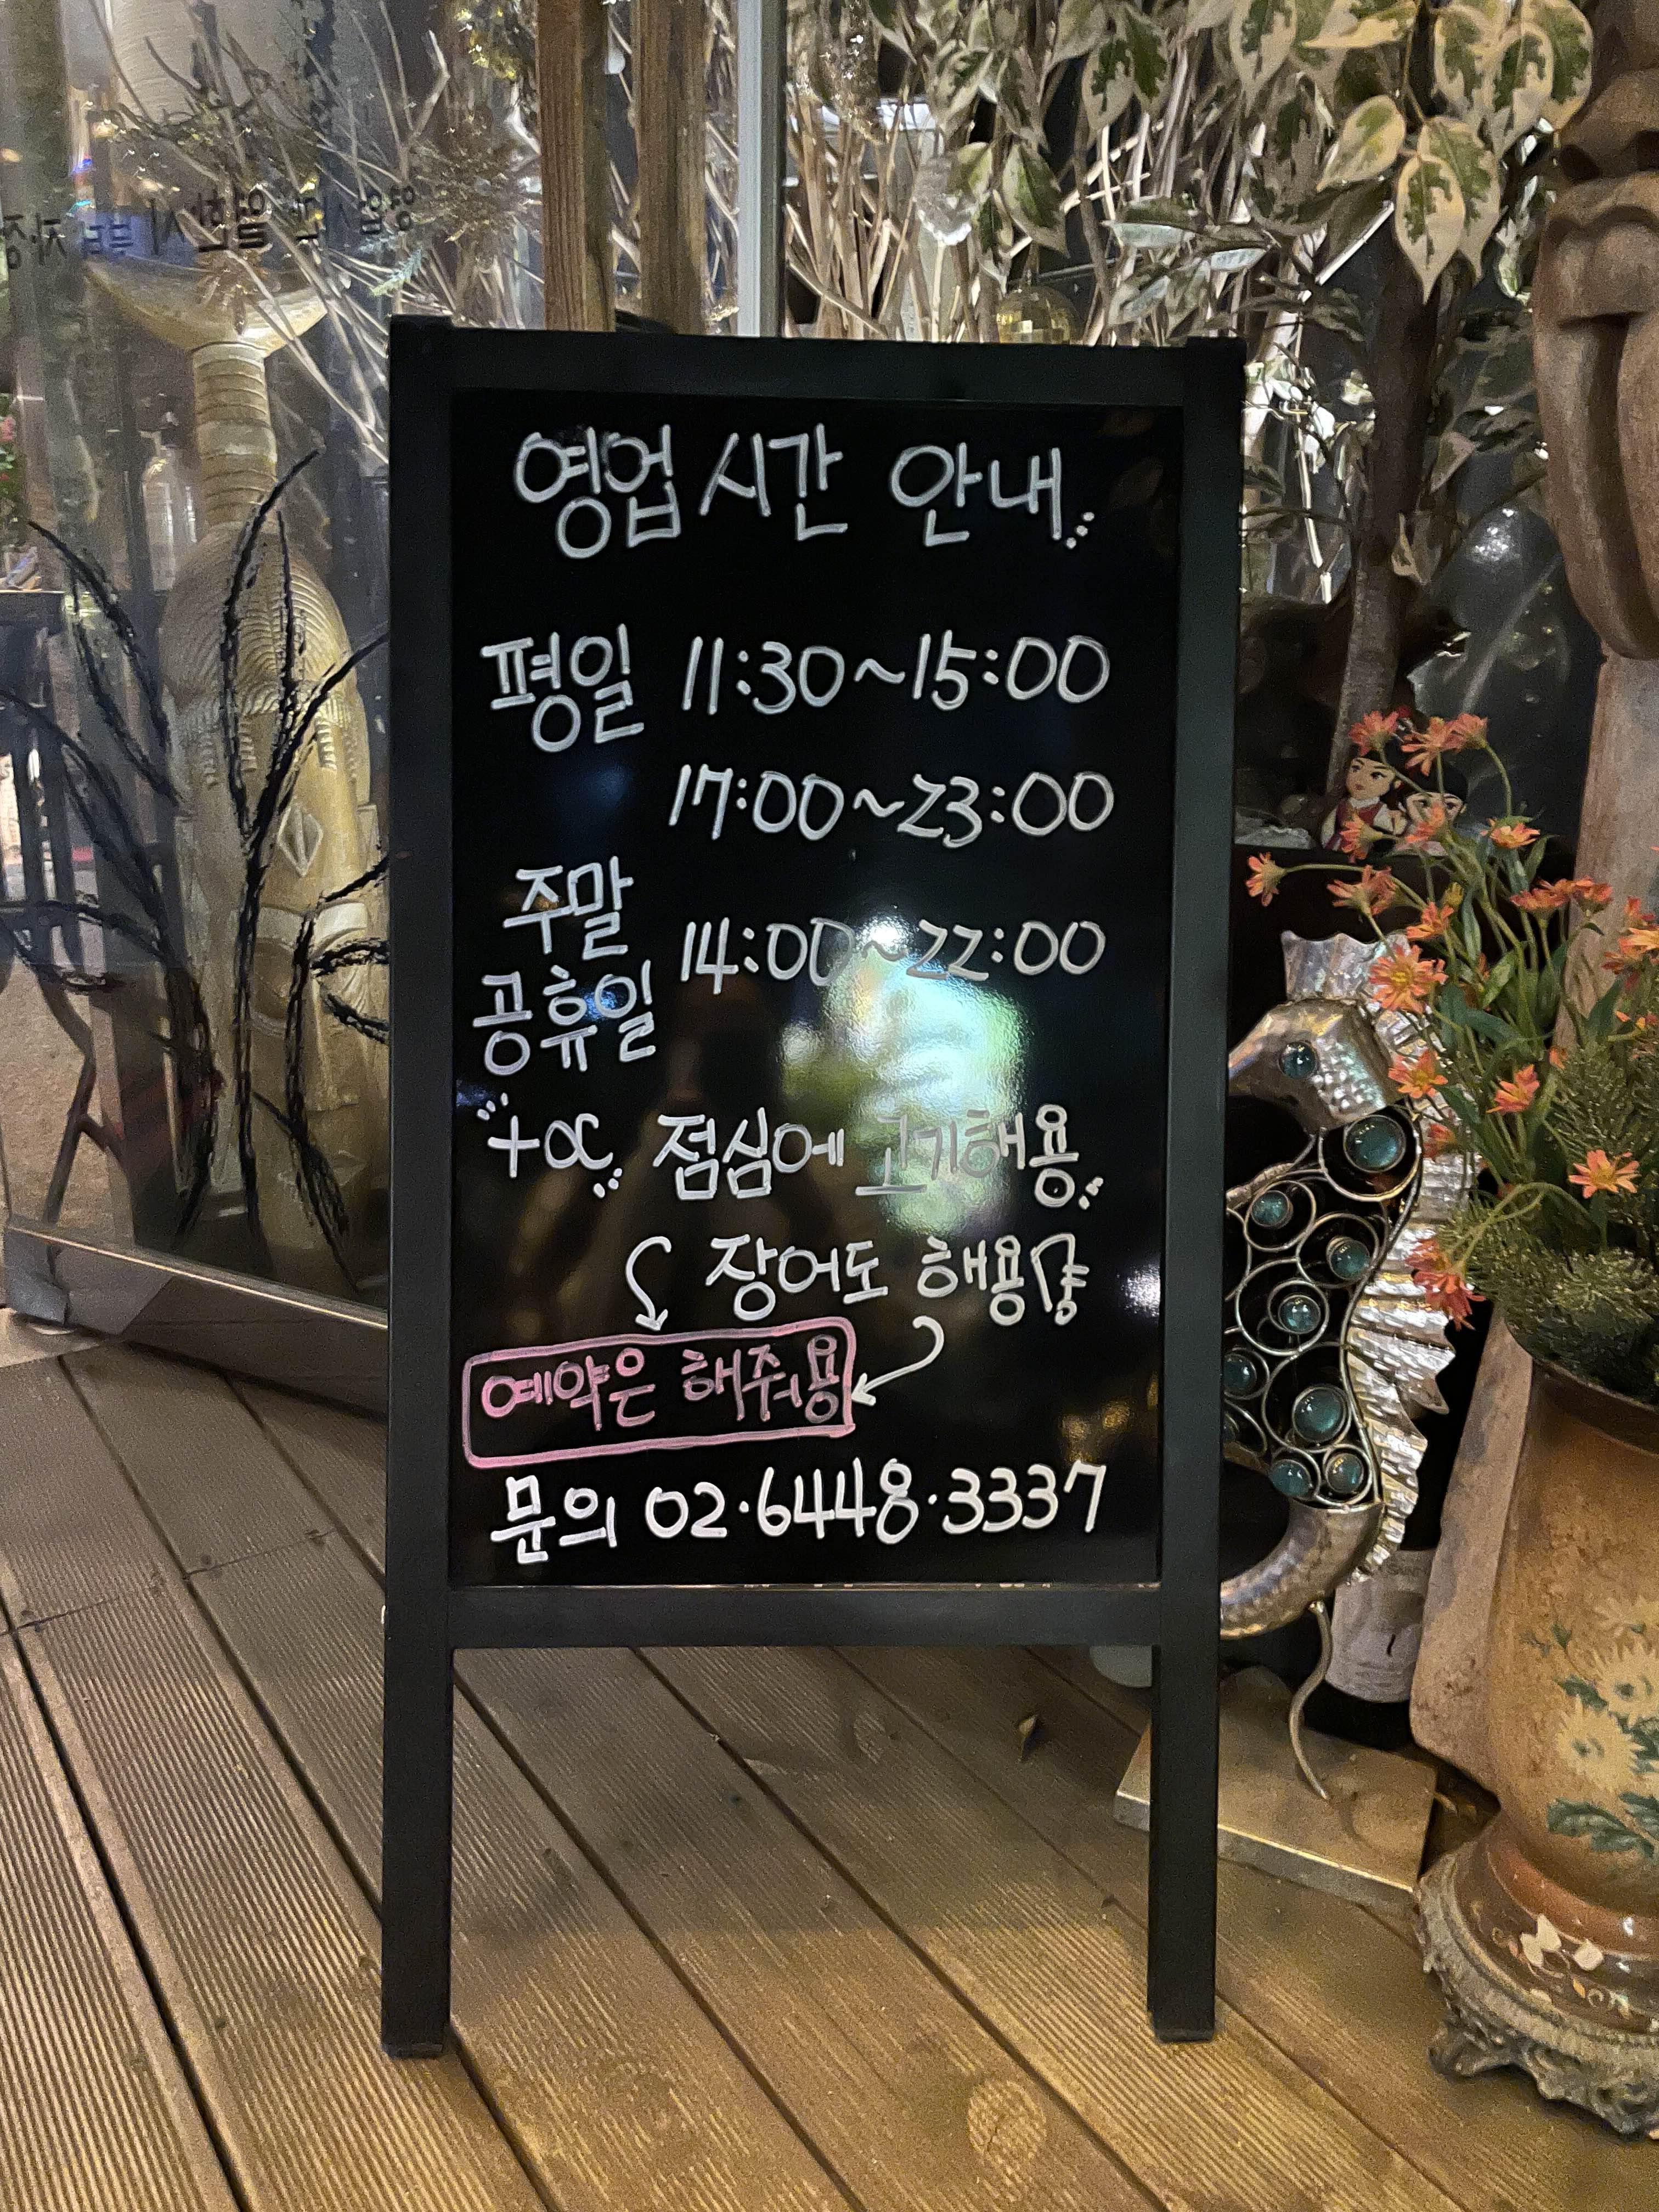 영업시간 안내
평일 11:30~15:00
17:00~23:00
주말
공휴일 14:00~22:00
+α 점심에 고기해용
장어도 해용
예약은 해줘용
문의 02·6448·3337